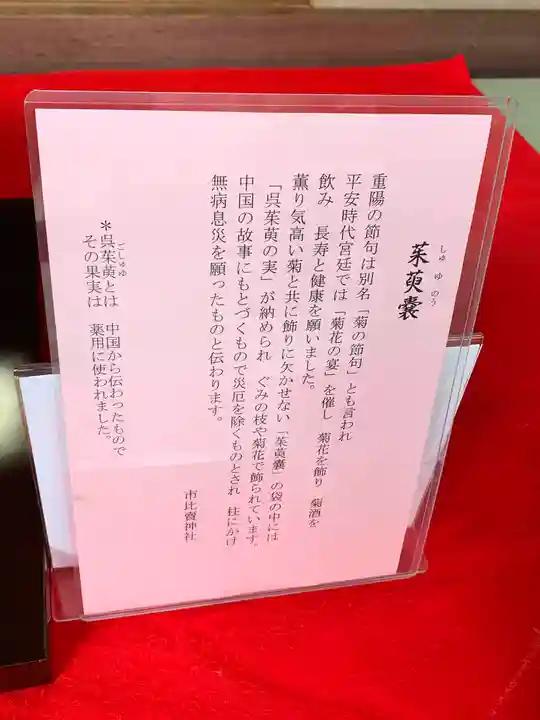 茱萸嚢
しゅゆのう
重陽の節句は別名「菊の節句」とも言われ
平安時代宮廷では「菊花の宴」を催し 菊花を飾り 菊酒を
飲み 長寿と健康を願いました。
薫り気高い菊と共に飾りに欠かせない「茱萸嚢」の袋の中には
「呉茱萸の実」が納められ ぐみの枝や菊花で飾られています。
中国の故事にもとづくもので災厄を除くものとされ 柱にかけ
無病息災を願ったものと伝わります。
市比賣神社
＊呉茱萸とは 中国から伝わったもので
ごしゅゆ
その果実は 薬用に使われました。